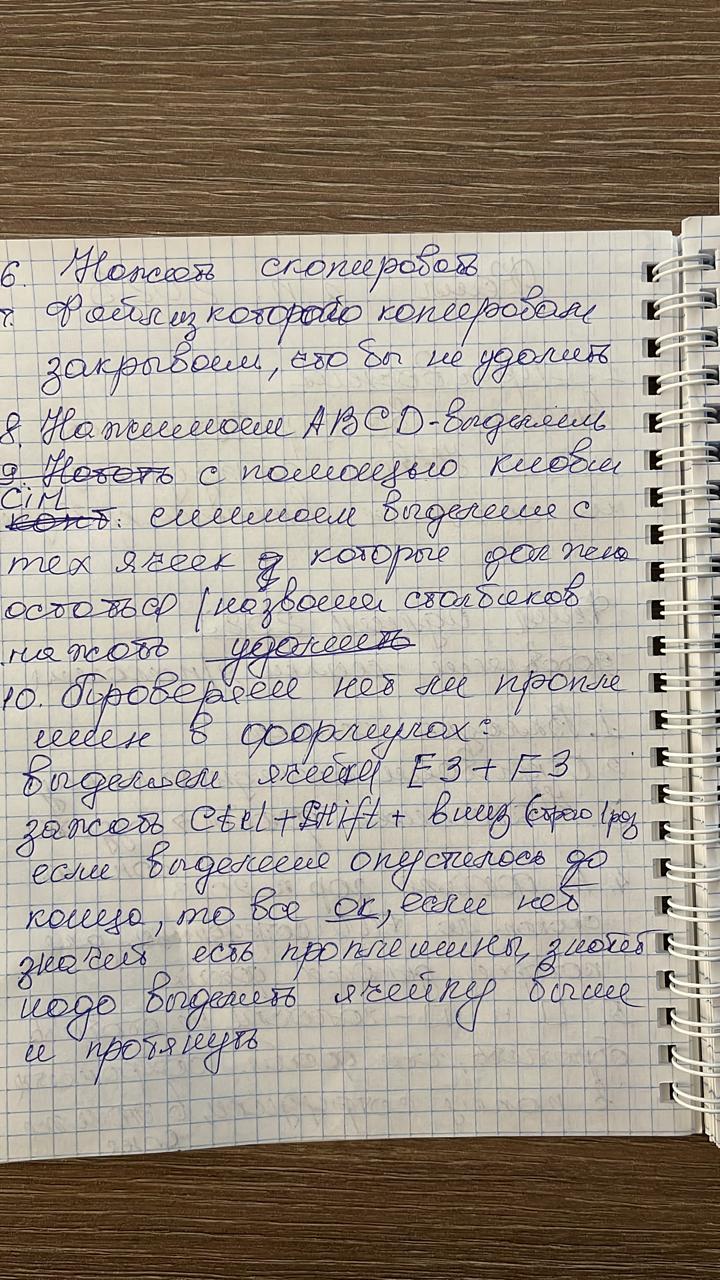 6. Нажать скопировать
7. Файл из которого копировали
закрываем, что бы не удалить
8. Нажимаем ABCD-выделить
9. с помощью кнопки
стрл: снимаем выделение с
тех ячеек которые должно
остаться / названия столбиков
нажать удалить
10. Проверяем нет ли пропле
шин в формулах:
выделяем ячейки E3 + F3
зажать Ctrl + Shift + вниз (стр 1 раз
если выделение опустилось до
конца, то все ок, если нет
значит есть проплешины, значит
надо выделить ячейку выше
и протянуть